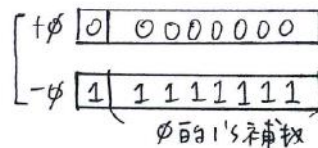 +φ 0 0000000
-φ 1 1111111
φ的1's補數